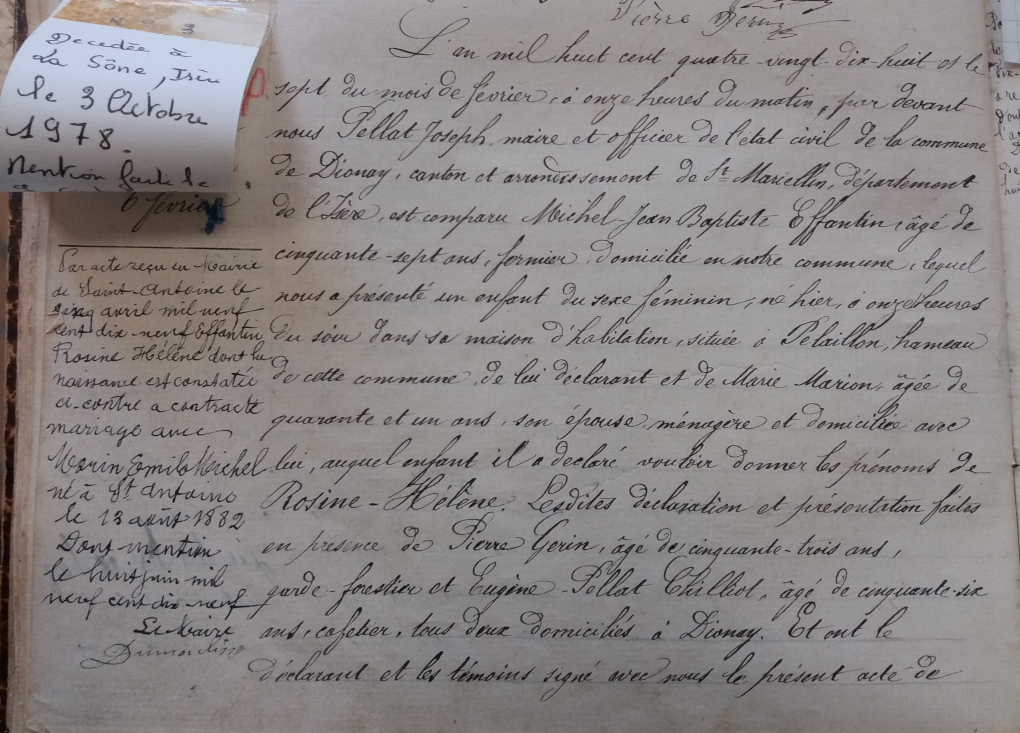 Pierre Perin
N° 3
Decedée à
La Sône, Isère
le 3 Octobre
1978.
Mention faite le
6 février
Par acte reçu en Mairie
de Saint-Antoine le
cinq avril mil neuf
cent dix-neuf Effantin
Rosine Hélène dont la
naissance est constatée
ci-contre a contracté
mariage avec
Morin Emile Michel
né à St Antoine
le 13 août 1882
Dont mention
le huit juin mil
neuf cent dix-neuf
Le Maire
Dumoulin
L'an mil huit cent quatre-vingt-dix-huit et le
sept du mois de février, à onze heures du matin, par devant
nous Pellat Joseph, maire et officier de l'état civil de la commune
de Dionay, canton et arrondissement de St Marcellin, département
de l'Isère, est comparu Michel-Jean Baptiste Effantin, âgé de
cinquante-sept ans, fermier, domicilié en notre commune, lequel
nous a présenté un enfant du sexe féminin, né hier, à onze heures
du soir dans sa maison d'habitation, située à Pelaillon, hameau
de cette commune, de lui déclarant et de Marie Marion, âgée de
quarante et un ans, son épouse, ménagère et domiciliée avec
lui, auquel enfant il a déclaré vouloir donner les prénoms de
Rosine-Hélène. Lesdites déclaration et présentation faites
en presence de Pierre Gerin, âgé de cinquante-trois ans,
garde-forestier et Eugène-Pellat Chilliot, âgé de cinquante-six
ans, cafetier, tous deux domiciliés à Dionay. Et ont le
déclarant et les témoins signé avec nous le présent acte de